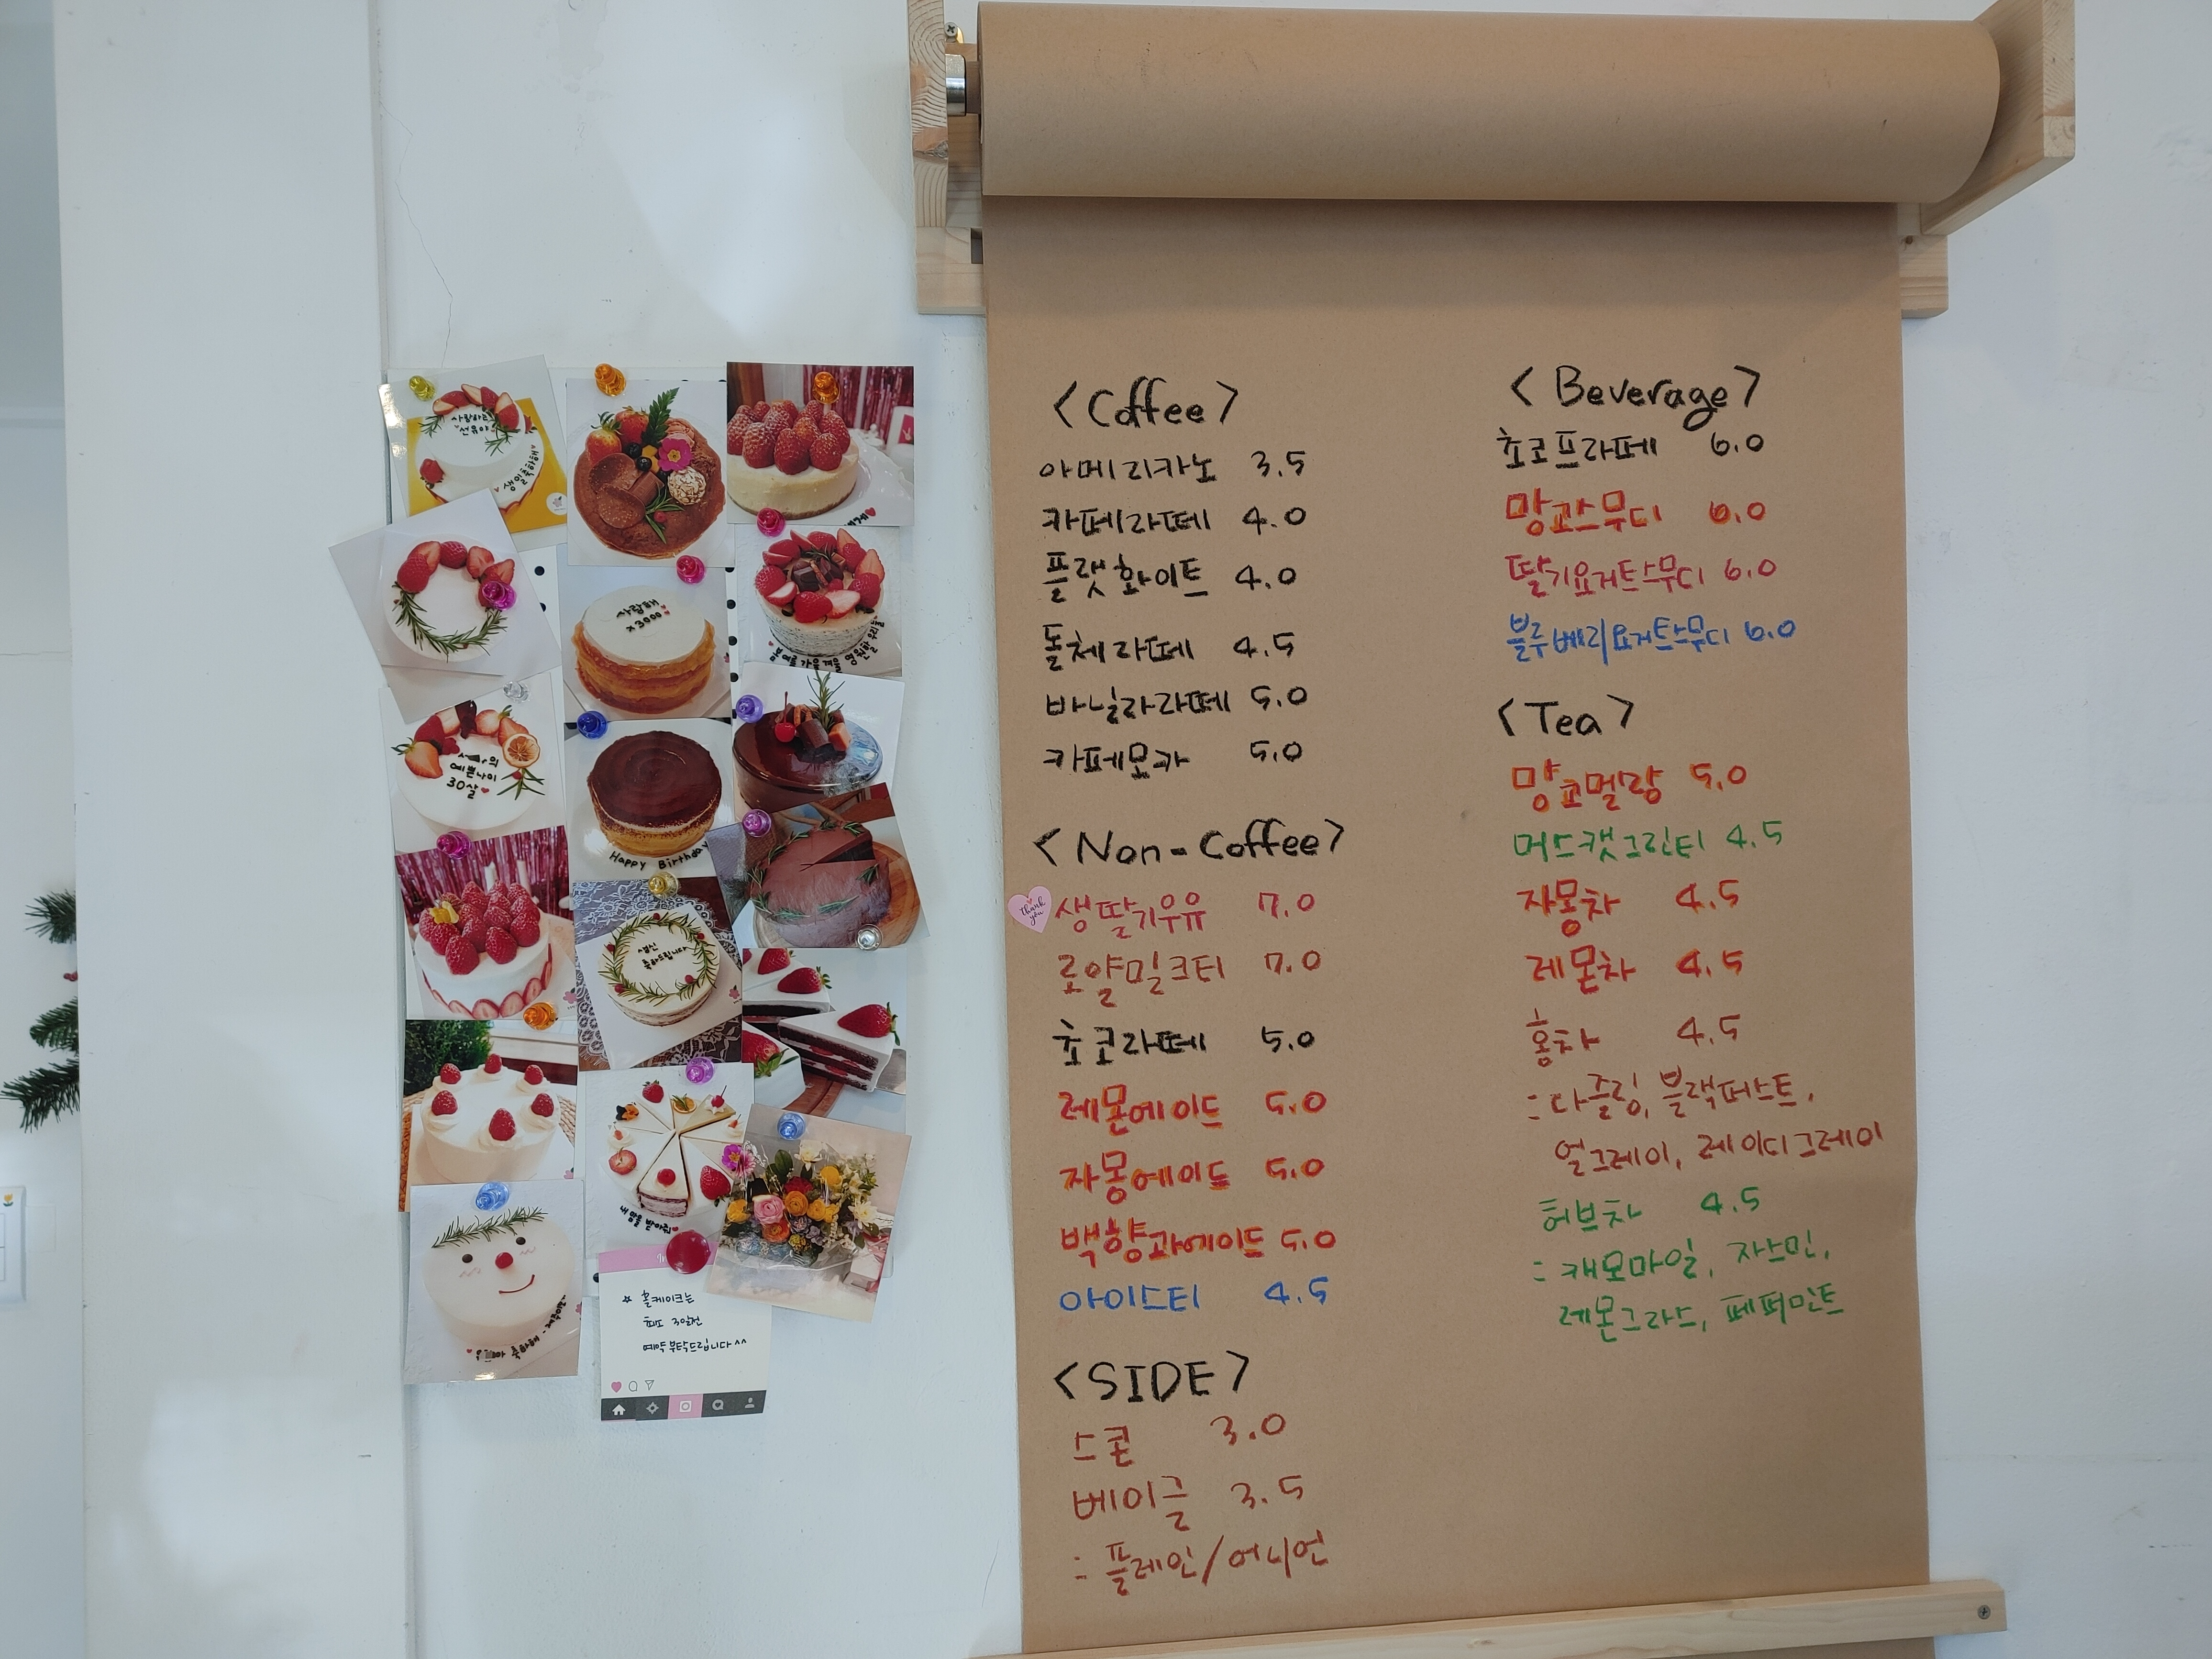 사랑하는
선유야
생일축하해
사랑해
x3000
예쁜나이
30살
Happy Birthday
축하드립니다
내 맘을 받아줘
☆ 홀케이크는
최소 3일전
예약 부탁드립니다^^
<Coffee>
아메리카노 3.5
카페라떼 4.0
플랫화이트 4.0
돌체라떼 4.5
바닐라라떼 5.0
카페모카 5.0
<Non-Coffee>
Thank you
생딸기우유 7.0
로얄밀크티 7.0
초코라떼 5.0
레몬에이드 5.0
자몽에이드 5.0
백향과에이드 5.0
아이스티 4.5
<SIDE>
스콘 3.0
베이글 3.5
: 플레인/어니언
<Beverage>
초코프라페 6.0
망고스무디 6.0
딸기요거트스무디 6.0
블루베리요거트스무디 6.0
<Tea>
망고멜랑 5.0
머스캣그린티 4.5
자몽차 4.5
레몬차 4.5
홍차 4.5
: 다즐링, 블랙퍼스트,
얼그레이, 레이디그레이
허브차 4.5
: 캐모마일, 자스민,
레몬그라스, 페퍼민트